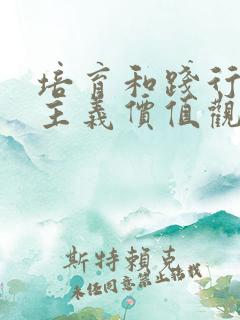 培育和踐行
主義價值觀
斯特賴克
未經同意禁止轉載